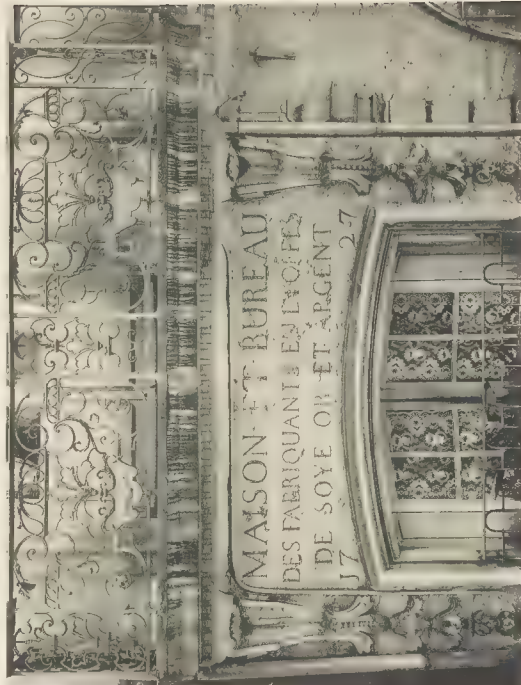 MAISON ET BUREAU
DES FABRIQUANTS EN ETOFFES
DE SOYE OR ET ARGENT
17 27